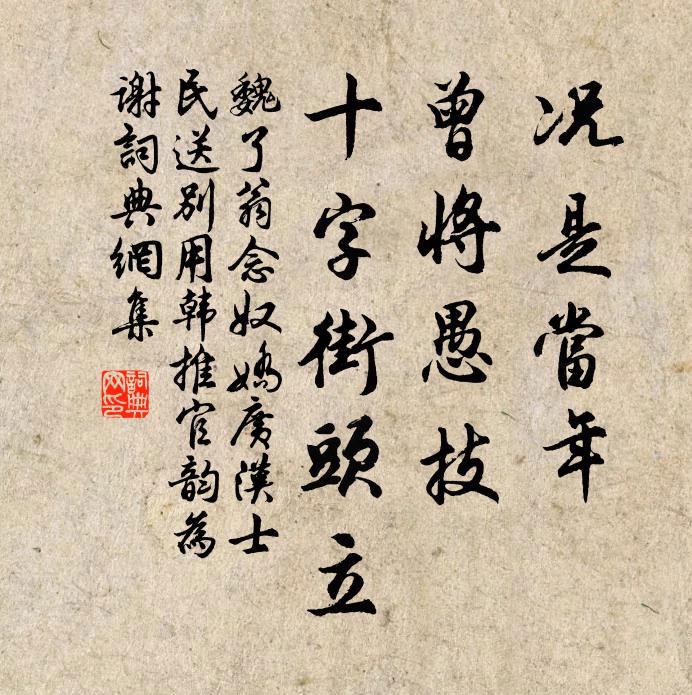 况是當年
曾將愚技
十字街頭立
魏了翁念奴嬌廣漢士
民送别用韩推官韵為
謝詞典網集
詞典
网印